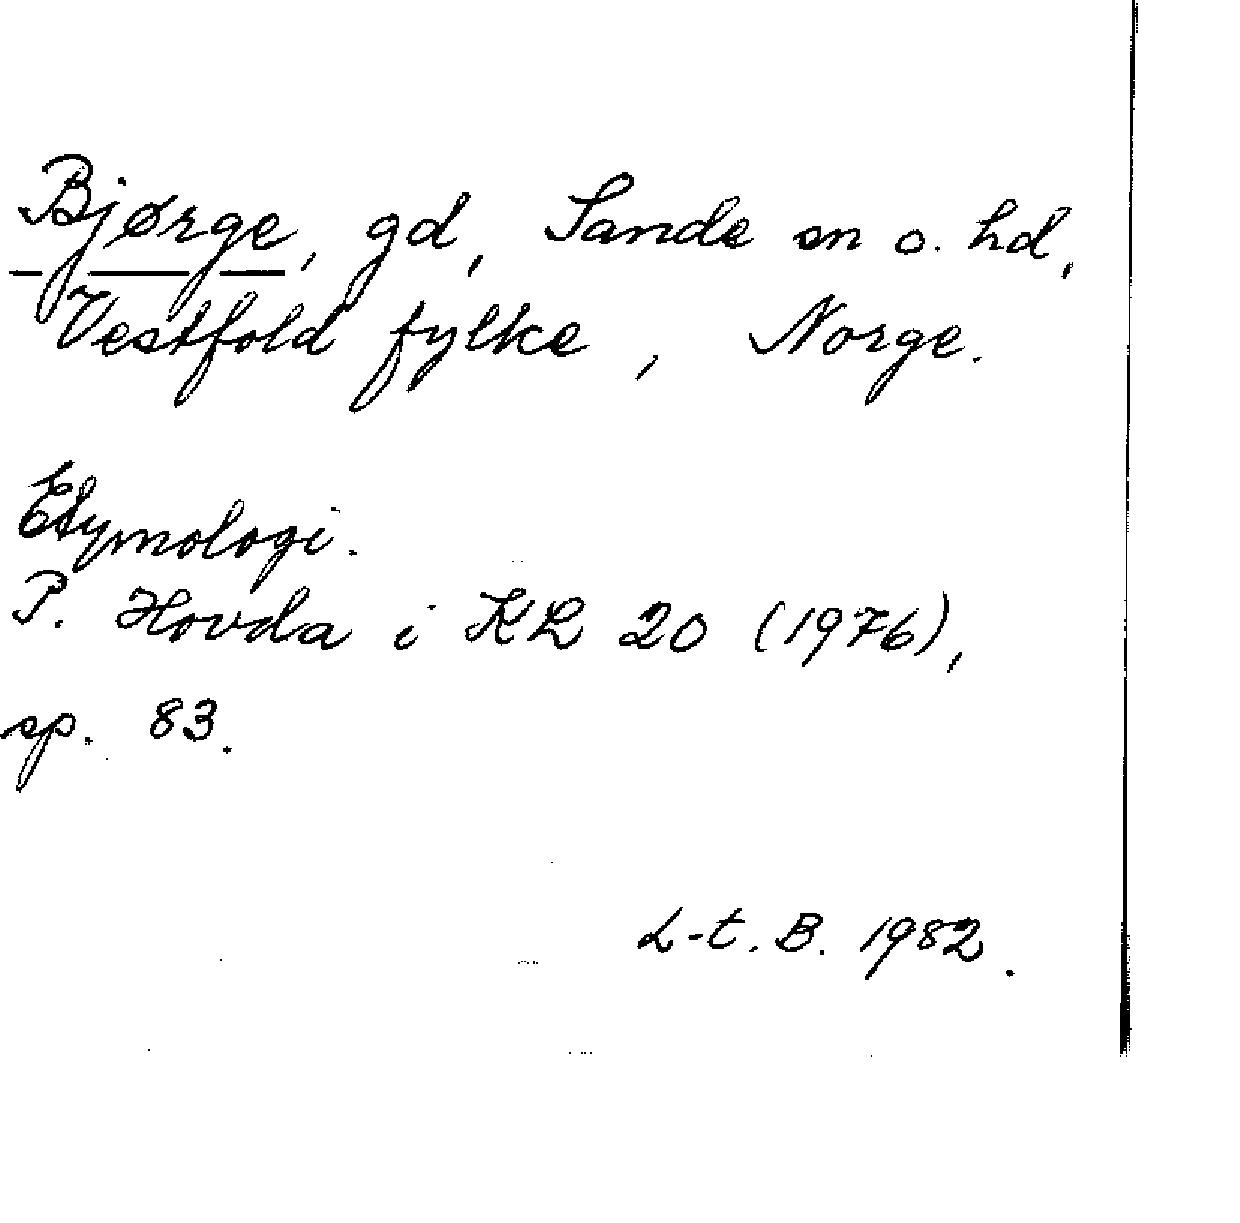 Bjørge, gd, Sande sn o. hd,
Vestfold fylke, Norge.
Etymologi.
P. Hovda i KL 20 (1976),
sp. 83.
L-t. B. 1982.